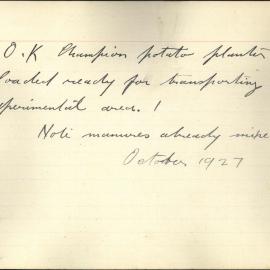 O.K Champion potato planter
loaded ready for transporting
experimental area. !
Note manures already mixe
October 1927